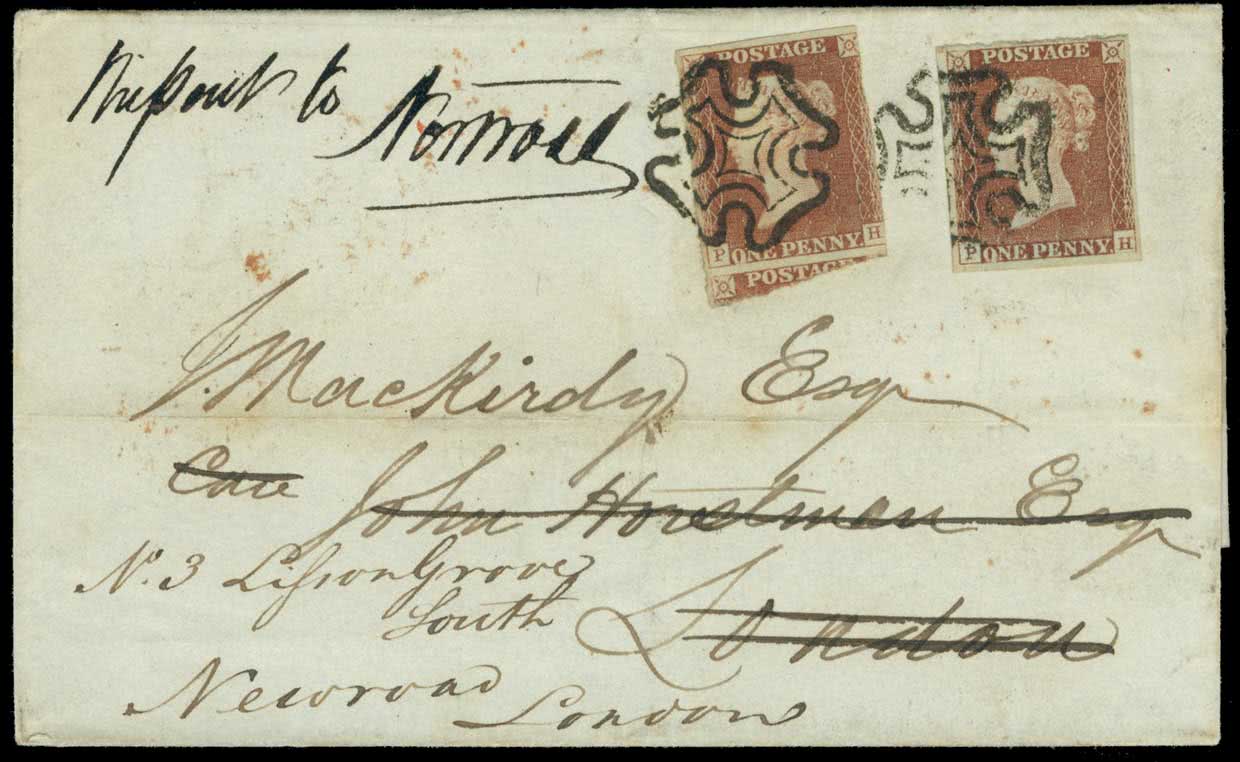 Missent to Norwood
POSTAGE
P ONE PENNY H
POSTAGE
POSTAGE
P ONE PENNY H
J. MacKirdy Esqr
Care John Horstman Esqr
No. 3 Lisson Grove
South
London
New road
London